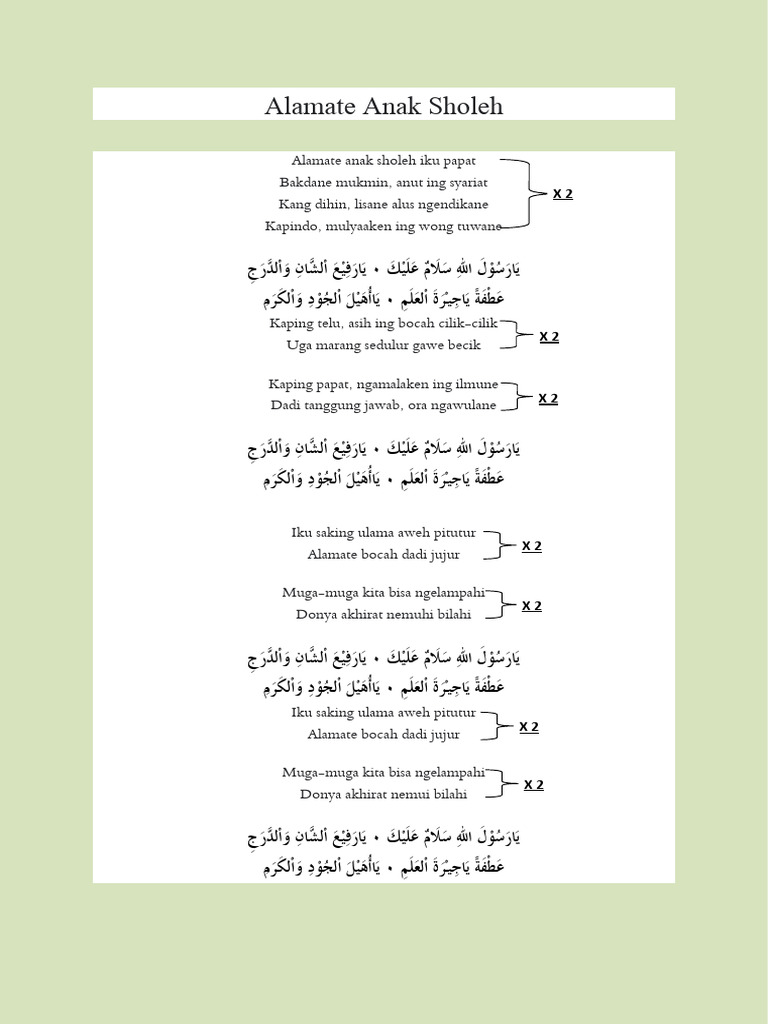 Alamate Anak Sholeh
Alamate anak sholeh iku papat
Bakdane mukmin, anut ing syariat
Kang dihin, lisane alus ngendikane
Kapindo, mulyaaken ing wong tuwane
X 2
يَارَسُوْلَ اللهِ سَلَامٌ عَلَيْكَ ۰ يَارَفِيْعَ اْلشَّانِ وَاْلدَّرَجِ
عَطْفَةً يَاجِيْرَةَ اْلعَلَمِ ۰ يَاأُهَيْلَ اْلجُوْدِ وَاْلكَرَمِ
Kaping telu, asih ing bocah cilik-cilik
Uga marang sedulur gawe becik
X 2
Kaping papat, ngamalaken ing ilmune
Dadi tanggung jawab, ora ngawulane
X 2
يَارَسُوْلَ اللهِ سَلَامٌ عَلَيْكَ ۰ يَارَفِيْعَ اْلشَّانِ وَاْلدَّرَجِ
عَطْفَةً يَاجِيْرَةَ اْلعَلَمِ ۰ يَاأُهَيْلَ اْلجُوْدِ وَاْلكَرَمِ
Iku saking ulama aweh pitutur
Alamate bocah dadi jujur
X 2
Muga-muga kita bisa ngelampahi
Donya akhirat nemuhi bilahi
X 2
يَارَسُوْلَ اللهِ سَلَامٌ عَلَيْكَ ۰ يَارَفِيْعَ اْلشَّانِ وَاْلدَّرَجِ
عَطْفَةً يَاجِيْرَةَ اْلعَلَمِ ۰ يَاأُهَيْلَ اْلجُوْدِ وَاْلكَرَمِ
Iku saking ulama aweh pitutur
Alamate bocah dadi jujur
X 2
Muga-muga kita bisa ngelampahi
Donya akhirat nemui bilahi
X 2
يَارَسُوْلَ اللهِ سَلَامٌ عَلَيْكَ ۰ يَارَفِيْعَ اْلشَّانِ وَاْلدَّرَجِ
عَطْفَةً يَاجِيْرَةَ اْلعَلَمِ ۰ يَاأُهَيْلَ اْلجُوْدِ وَاْلكَرَمِ